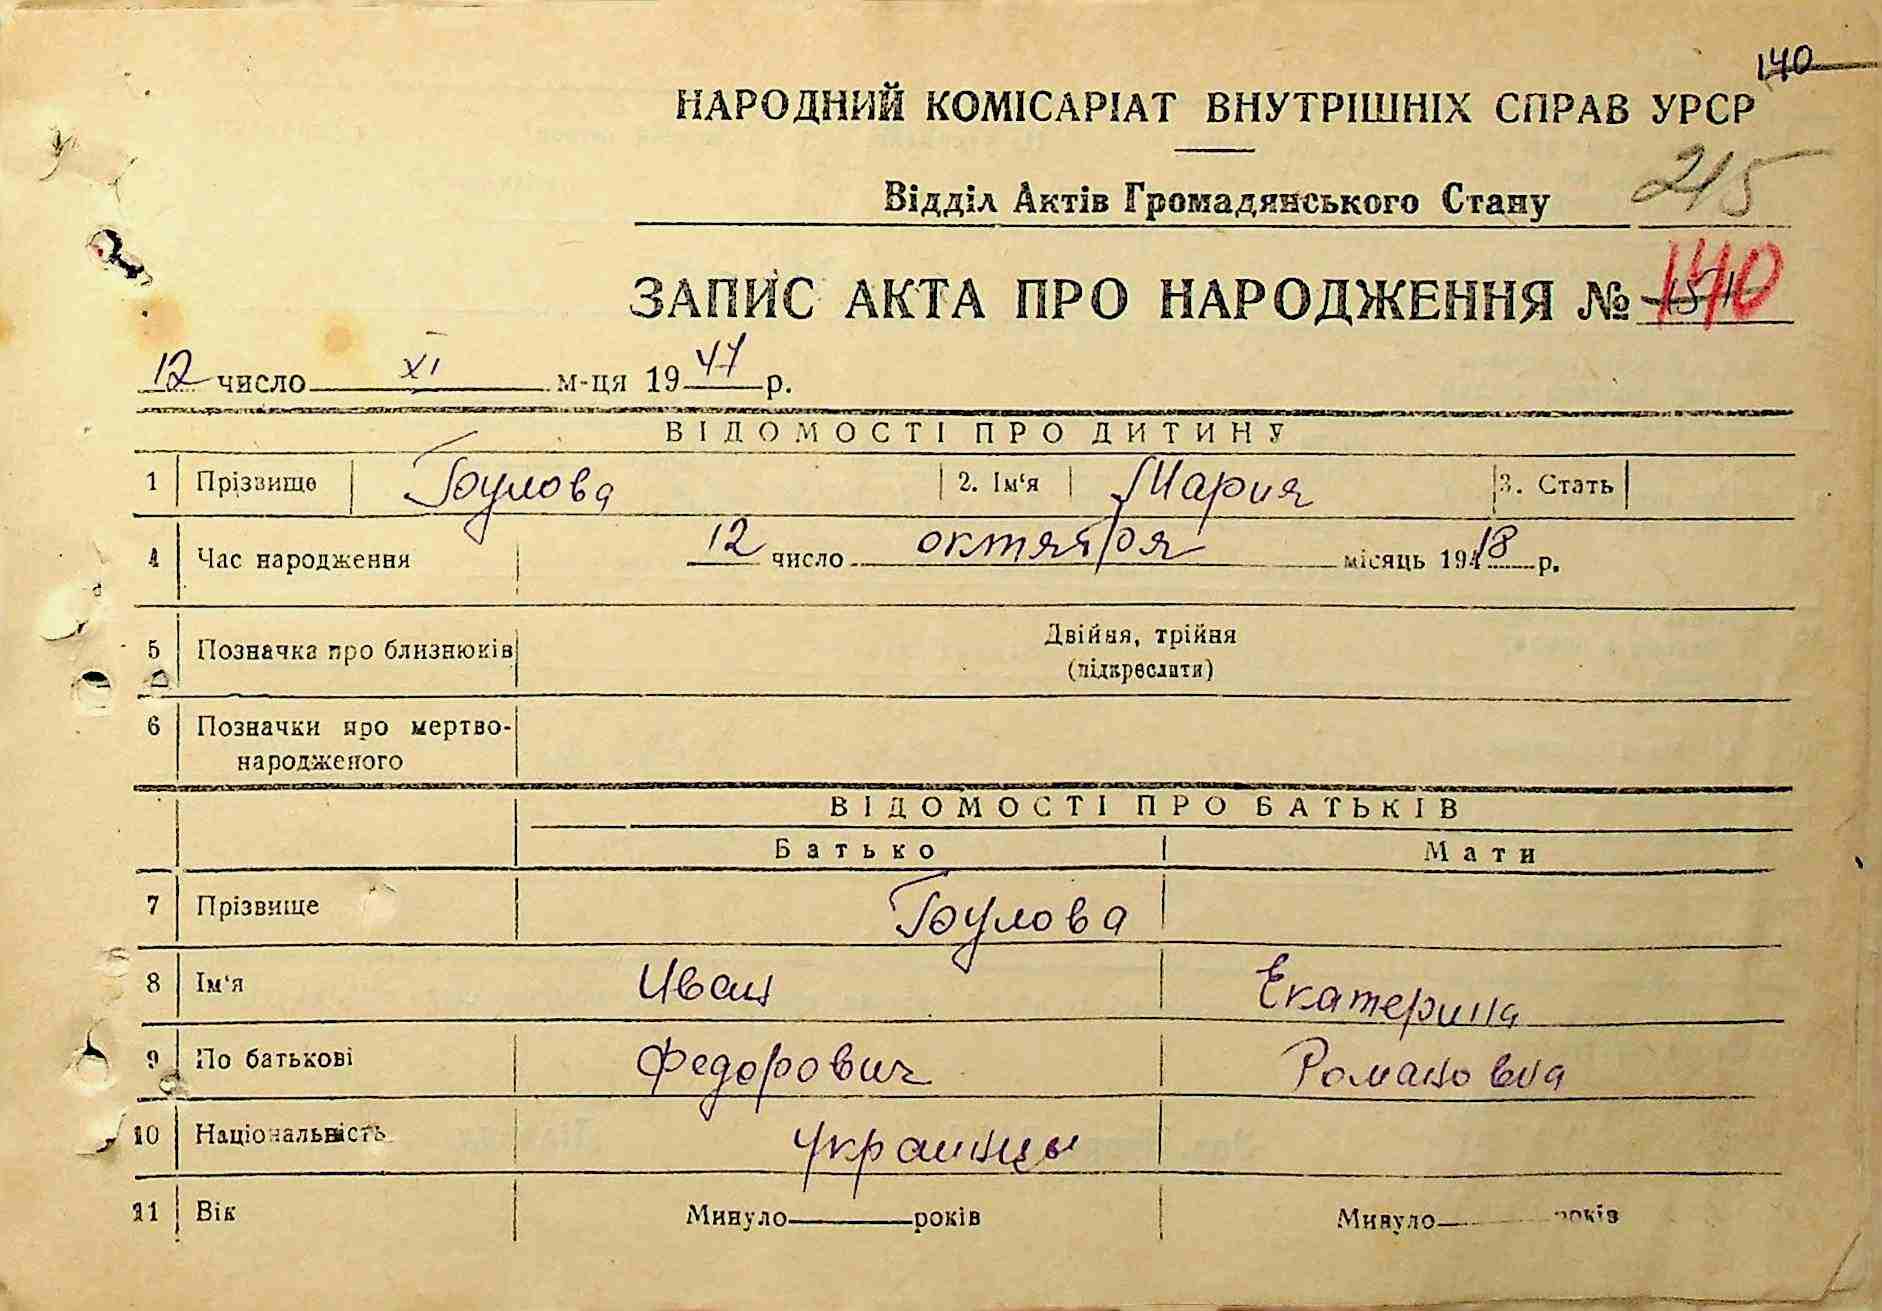 140
НАРОДНИЙ КОМІСАРІАТ ВНУТРІШНІХ СПРАВ УРСР
215
Відділ Актів Громадянського Стану
ЗАПИС АКТА ПРО НАРОДЖЕННЯ № 140
12 число XI м-ця 1947 р.
ВІДОМОСТІ ПРО ДИТИНУ
1 Прізвище Булова 2. Ім'я Мария 3. Стать
4 Час народження 12 число октября місяць 1918 р.
5 Позначка про близнюків Двійня, трійня
(підкреслити)
6 Позначки про мертво-
народженого
ВІДОМОСТІ ПРО БАТЬКІВ
Батько Мати
7 Прізвище Булова
8 Ім'я Иван Екатерина
9 По батькові Федорович Романовна
10 Національність украинцы
11 Вік Минуло років Минуло років